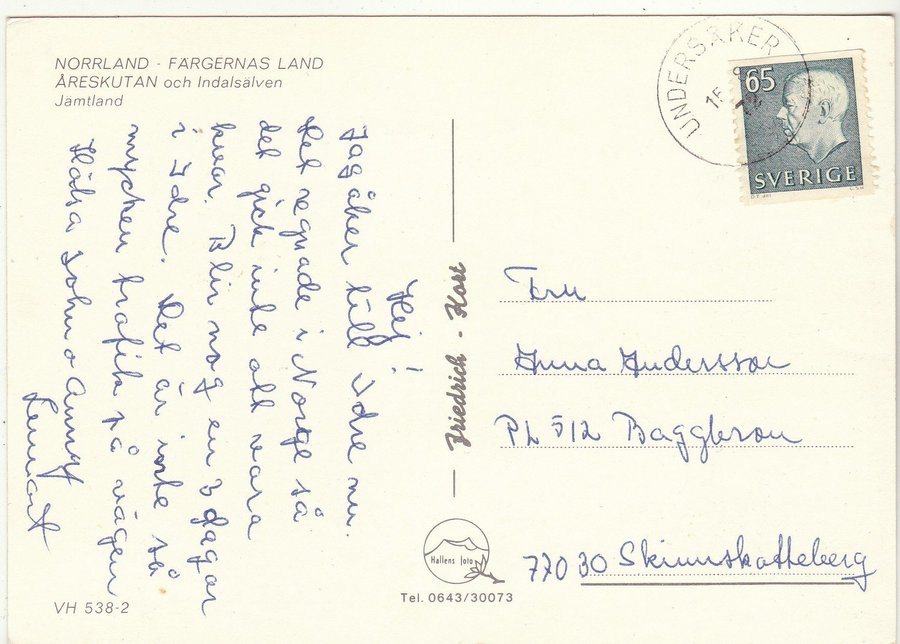 NORRLAND - FÄRGERNAS LAND
ÅRESKUTAN och Indalsälven
Jämtland
Hej!
Jag åker till Idre nu.
Det regnade i Norge så
det gick inte att vara
kvar. Blir nog en 3 dagar
i Idre. Det är inte så
mycken trafik på vägen
Hälsa John o Anny
Lennart
VH 538-2
Friedrich - Kort
Hallens foto
Tel. 0643/30073
UNDERSÅKER
16
65
SVERIGE
Fru
Anna Andersson
PL 512 Baggbron
77030 Skinnskatteberg